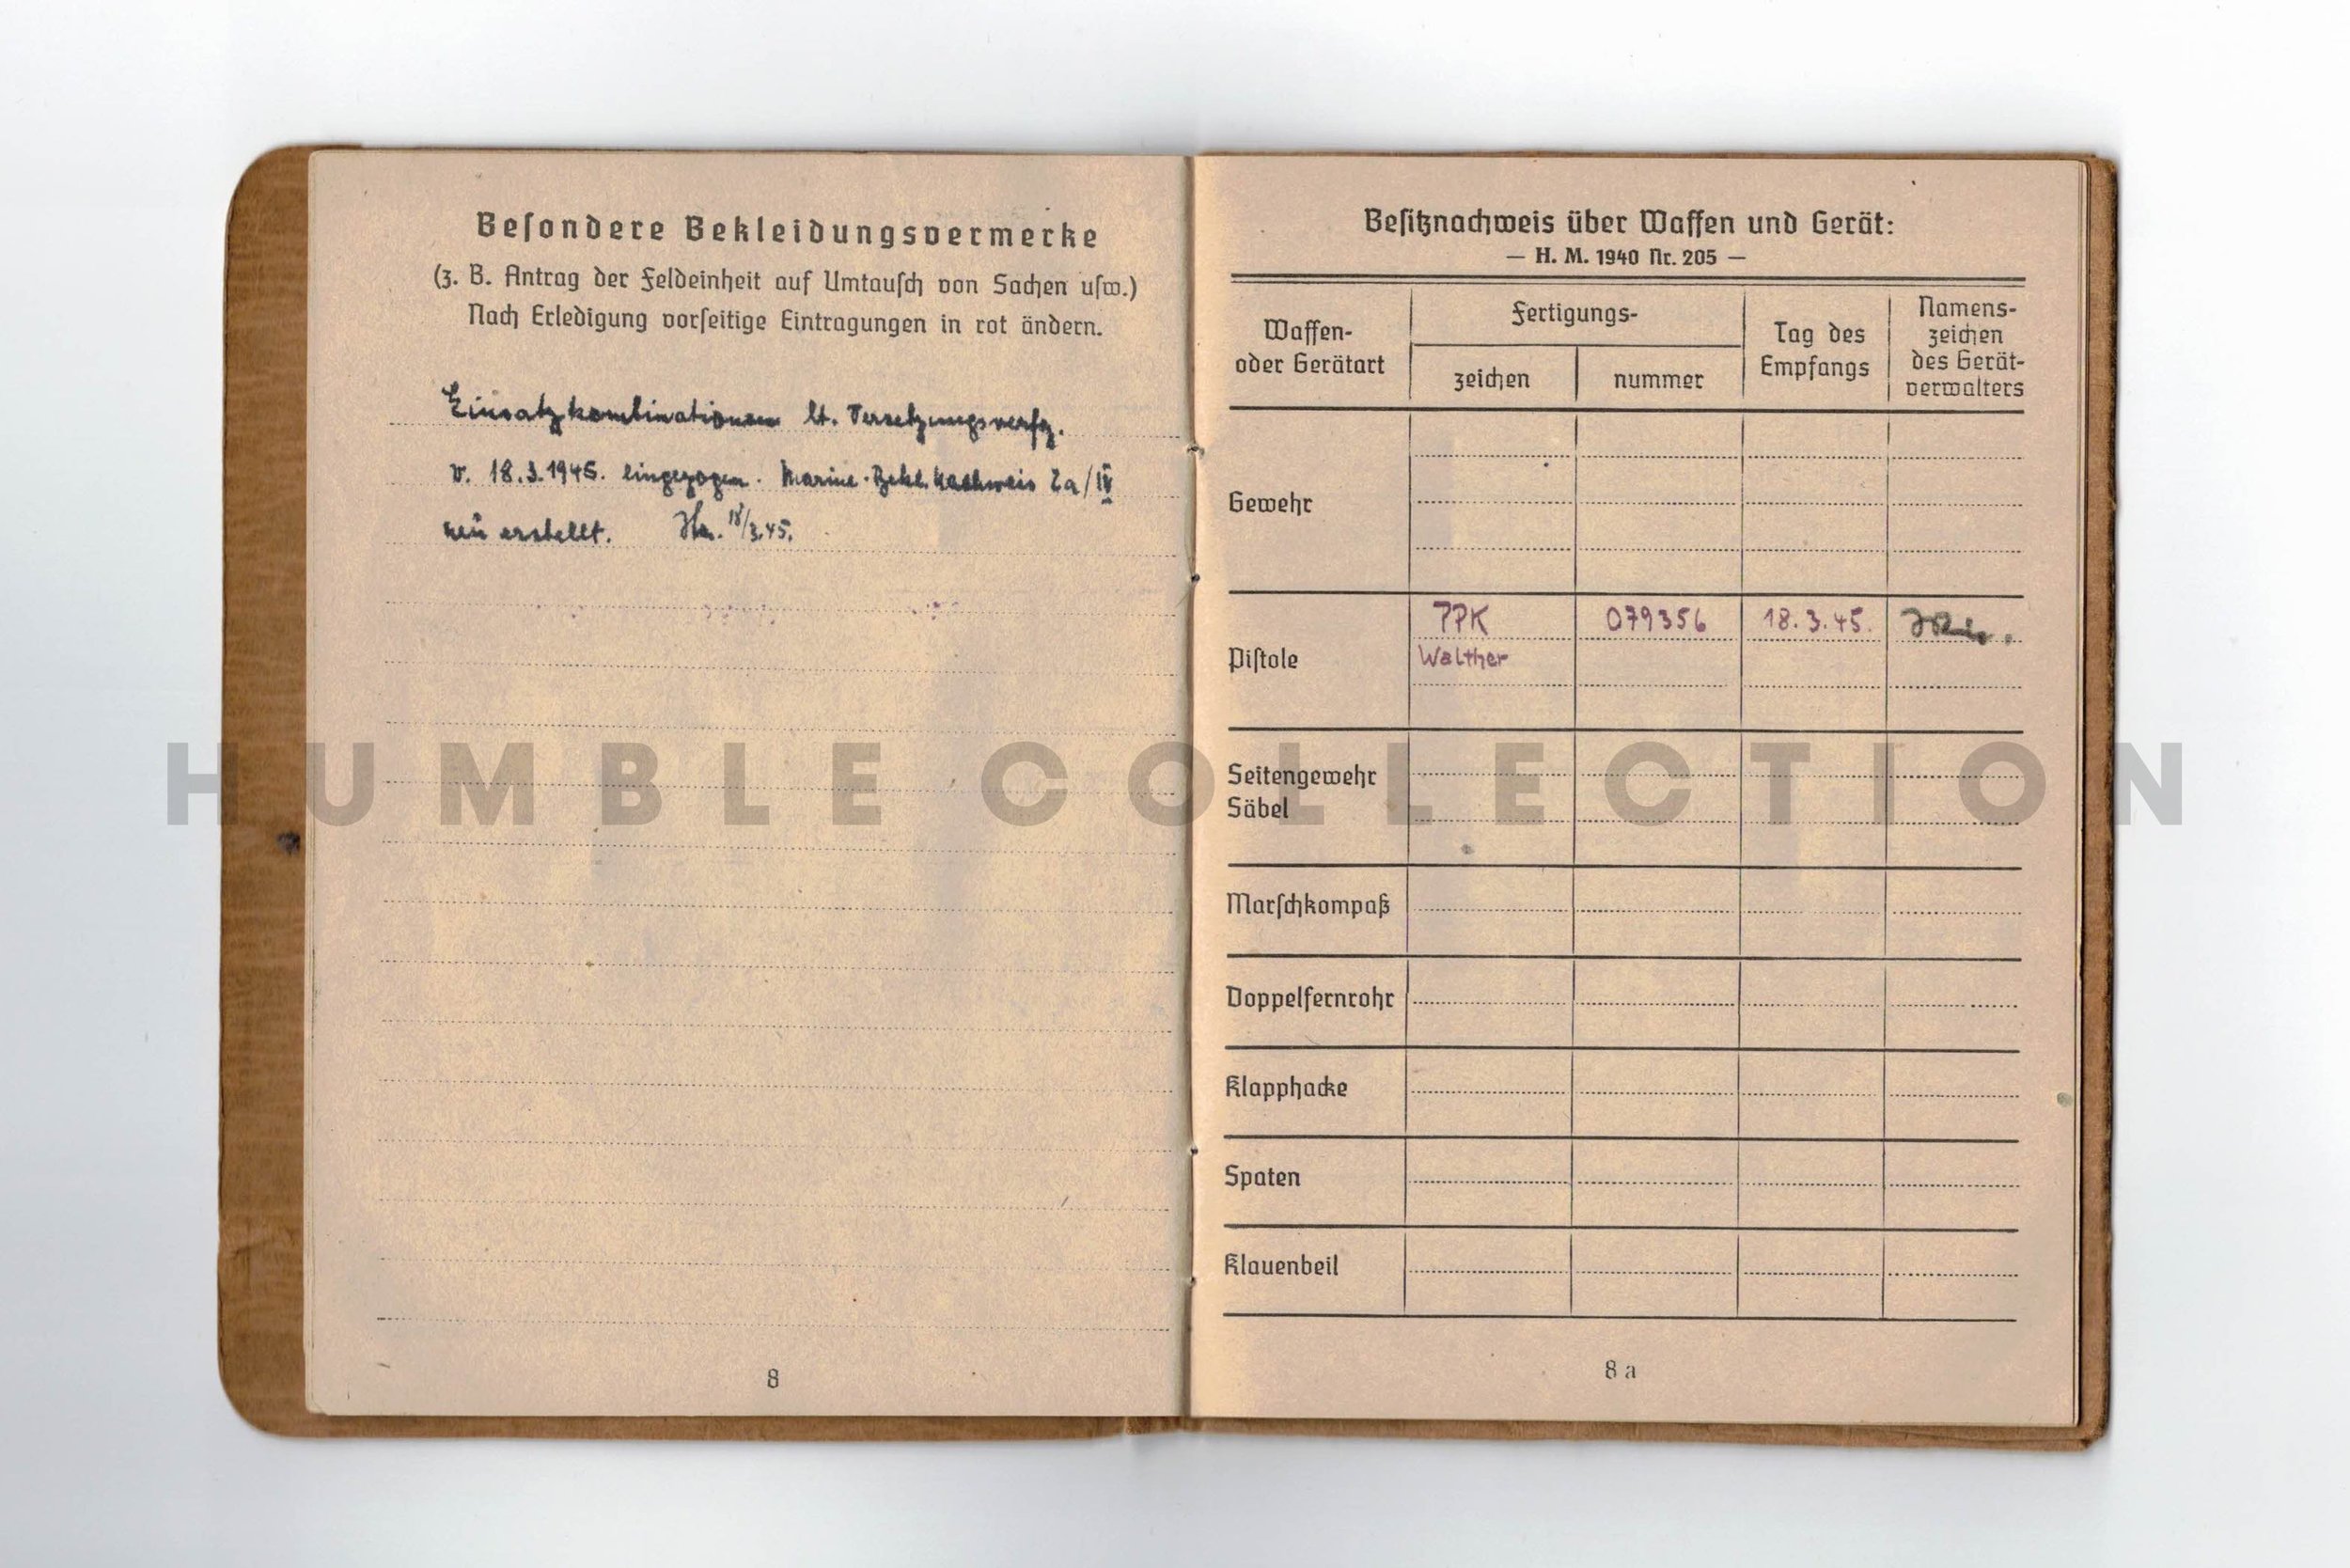 Besondere Bekleidungsvermerke
(z. B. Antrag der Feldeinheit auf Umtausch von Sachen usw.)
Nach Erledigung vorseitige Eintragungen in rot ändern.
Einsatzkombinationen lt. Versetzungsverfg.
v. 18.3.1945. eingezogen. Marine-Bekl. Nachweis 2a/IV
neu erstellt. 18/3.45.
8
Besitznachweis über Waffen und Gerät:
— H. M. 1940 Nr. 205 —
Waffen-
oder Gerätart
Fertigungs-
zeichen
nummer
Tag des
Empfangs
Namens-
zeichen
des Gerät-
verwalters
Gewehr
Pistole
PPK 079356 18.3.45.
Walther
Seitengewehr
Säbel
Marschkompaß
Doppelfernrohr
Klapphacke
Spaten
Klauenbeil
8 a
HUMBLE COLLECTION